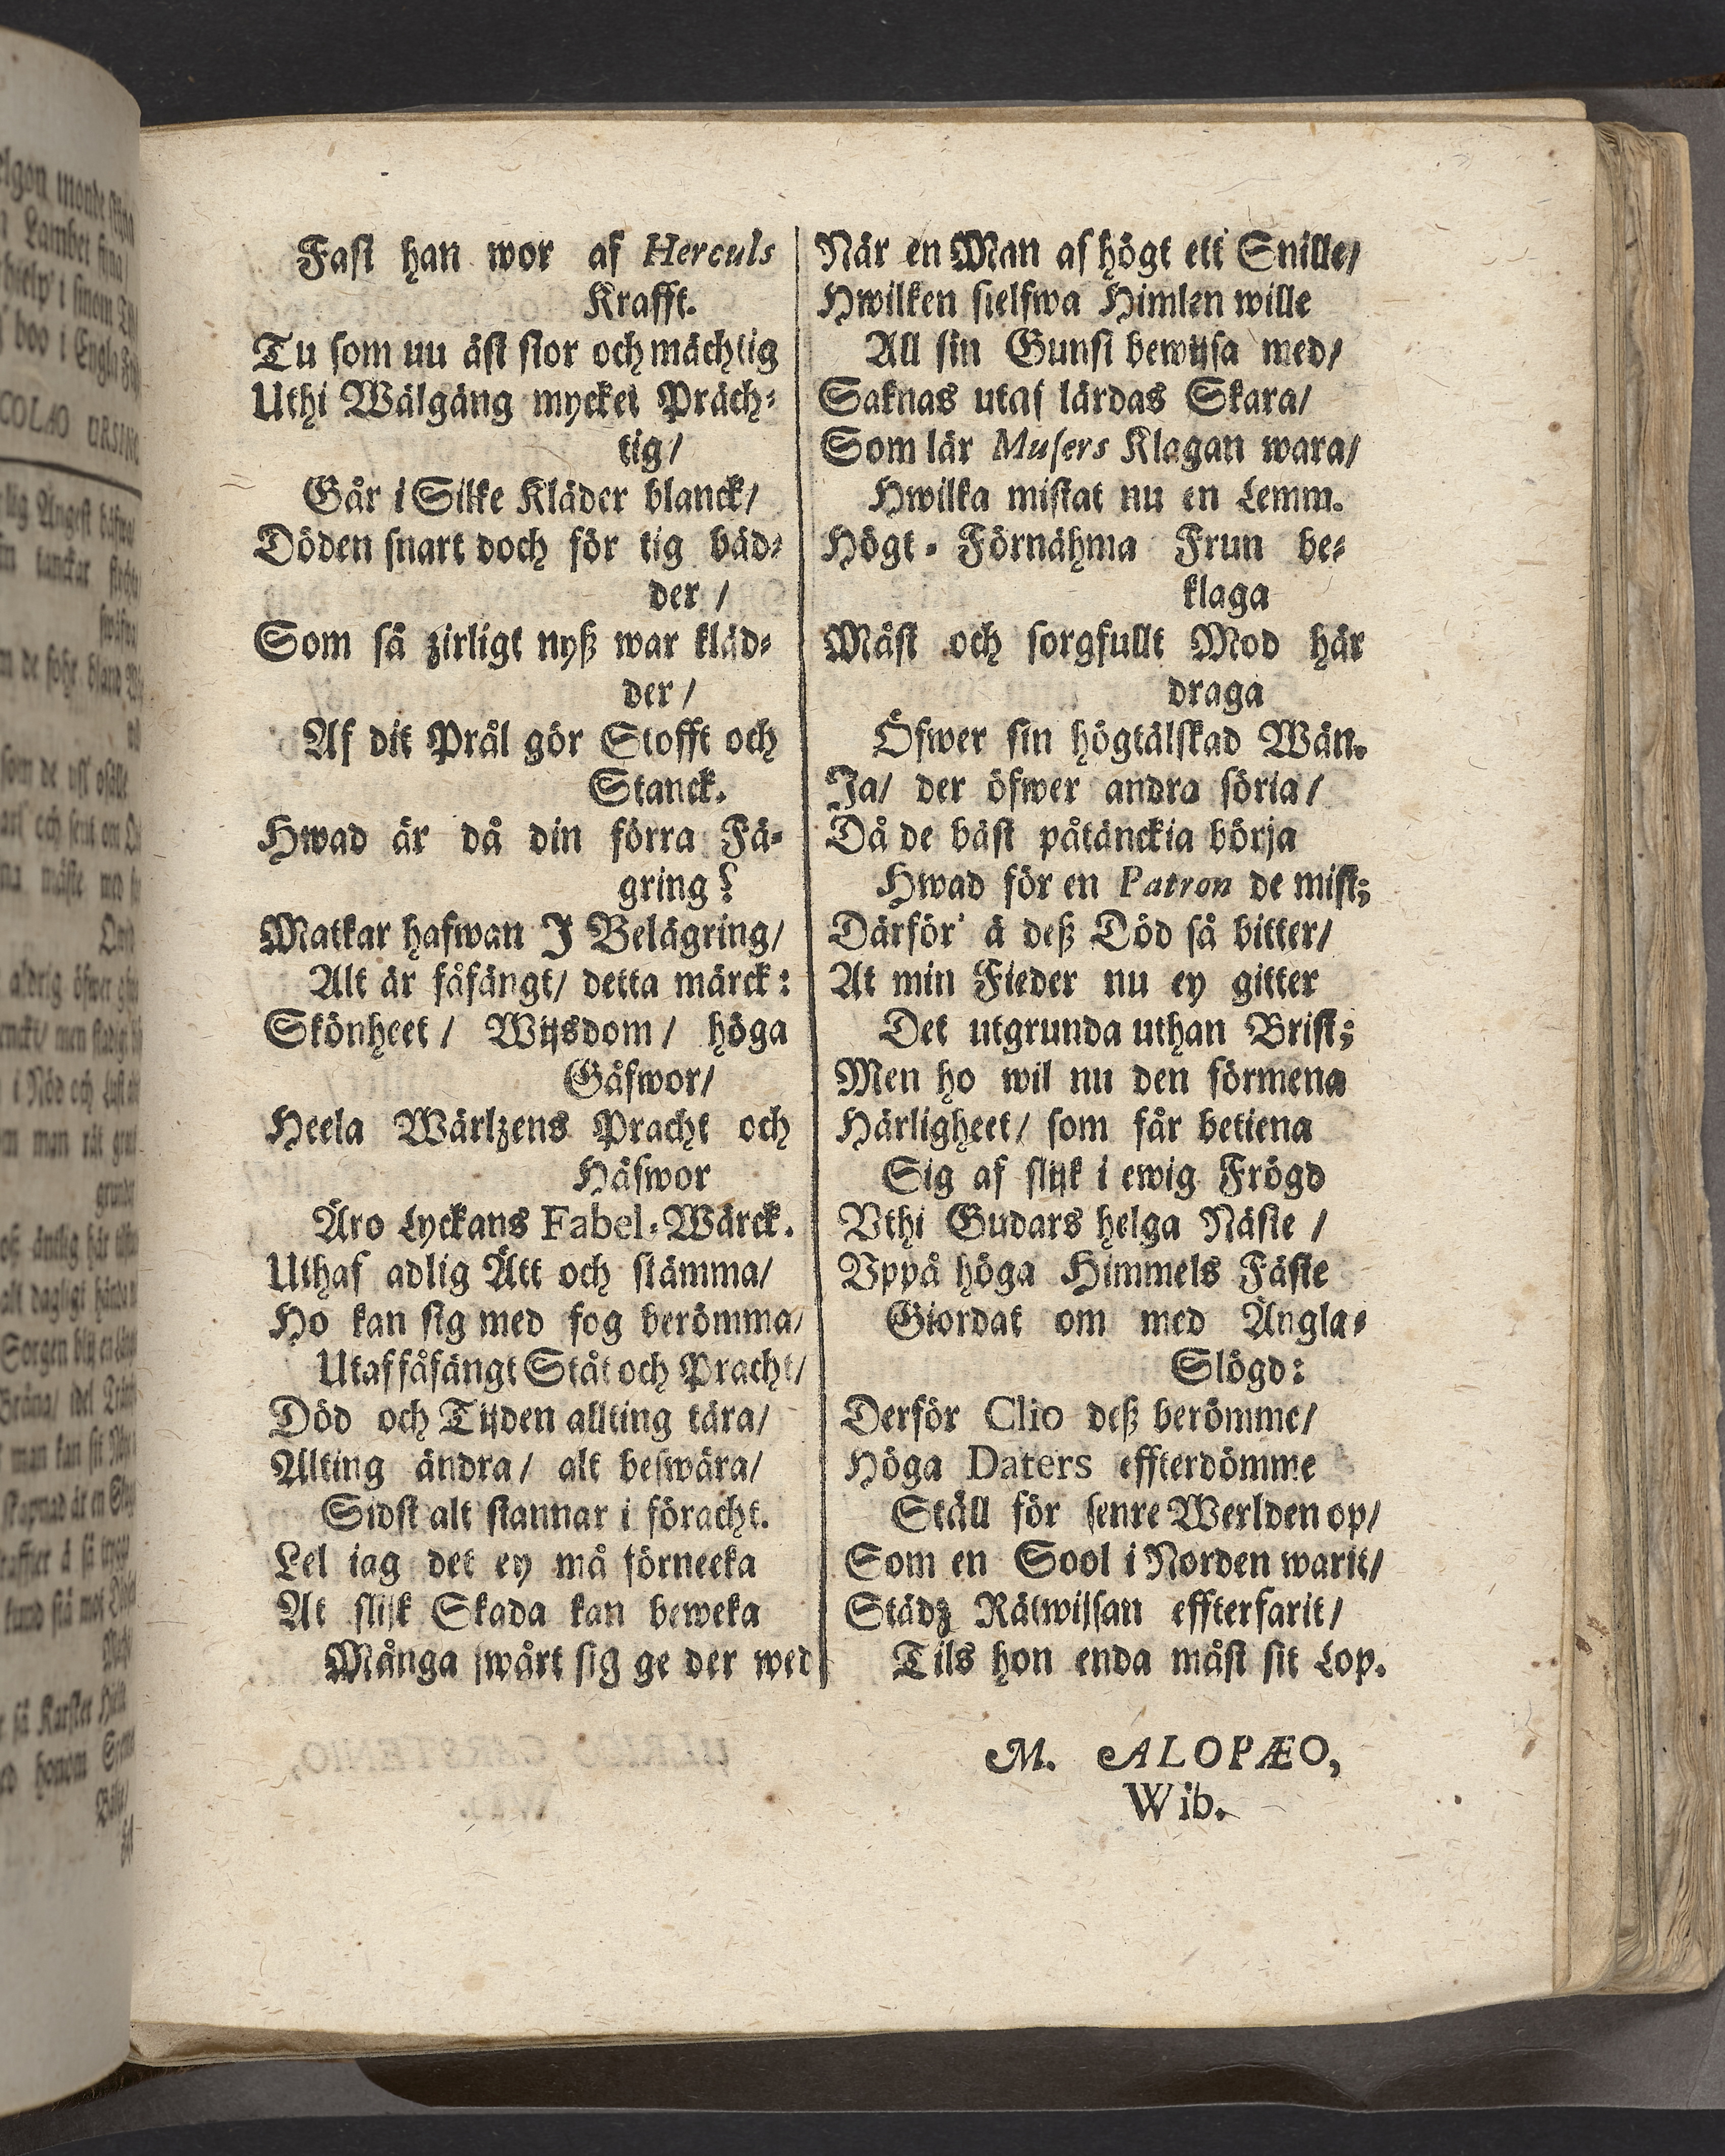 Fast han wor af Herculs
Krafft.
Tu som nu äst stor och mächtig
Uthi Wälgäng myckei Präch⸗
tig/
Går i Silke Kläder blanck/
Döden snart doch för tig bäd⸗
der /
Som så zirligt nyß war kläd⸗
der/
Af dit Prål gör Stofft och
Stanck.
Hwad är då din förra Fä⸗
gring?
Matkar hafwan J Belägring/
Alt är fåfängt/ detta märck:
Skönheet/ Wijsdom/ höga
Gäfwor/
Heela Wärlzens Pracht och
Häfwor
Äro Lyckans Fabel⸗Wärck.
Uthaf adlig Ätt och stämma/
Ho kan sig med fog berömma/
Utaf fåfängt Ståt och Pracht/
Död och Tijden allting tära/
Alting ändra/ alt beswära/
Sidst alt stannar i föracht.
Lel iag det ey må förneeka
At slijk Skada kan beweka
Många swårt sig ge der wed
När en Man af högt ett Snille/
Hwilken sielfwa Himlen wille
All sin Gunst bewijsa med/
Saknas utaf lärdas Skara/
Som lär Musers Klagan wara/
Hwilka mistat nu en Lemm.
Högt⸗Förnähma Frun be⸗
klaga
Måst och sorgfullt Mod här
draga
Öfwer sin högtälskad Wän.
Ja/ der öfwer andra söria/
Då de bäst påtänckia börja
Hwad för en Patron de mist;
Därför' ä deß Död så bitter/
At min Fieder nu ey gitter
Det utgrunda uthan Brist;
Men ho wil nu den förmena
Härligheet/ som får betiena
Sig af slijk i ewig Frögd
Vthi Gudars helga Näste /
Vppå höga Himmels Fäste
Giordat om med Ängla⸗
Slögd:
Derför Clio deß berömme/
Höga Daters effterdömme
Ställ för senre Werlden op/
Som en Sool i Norden warit/
Städz Rätwijsan effterfarit/
Tils hon enda måst sit Lop.
M. ALOPÆO,
Wib.